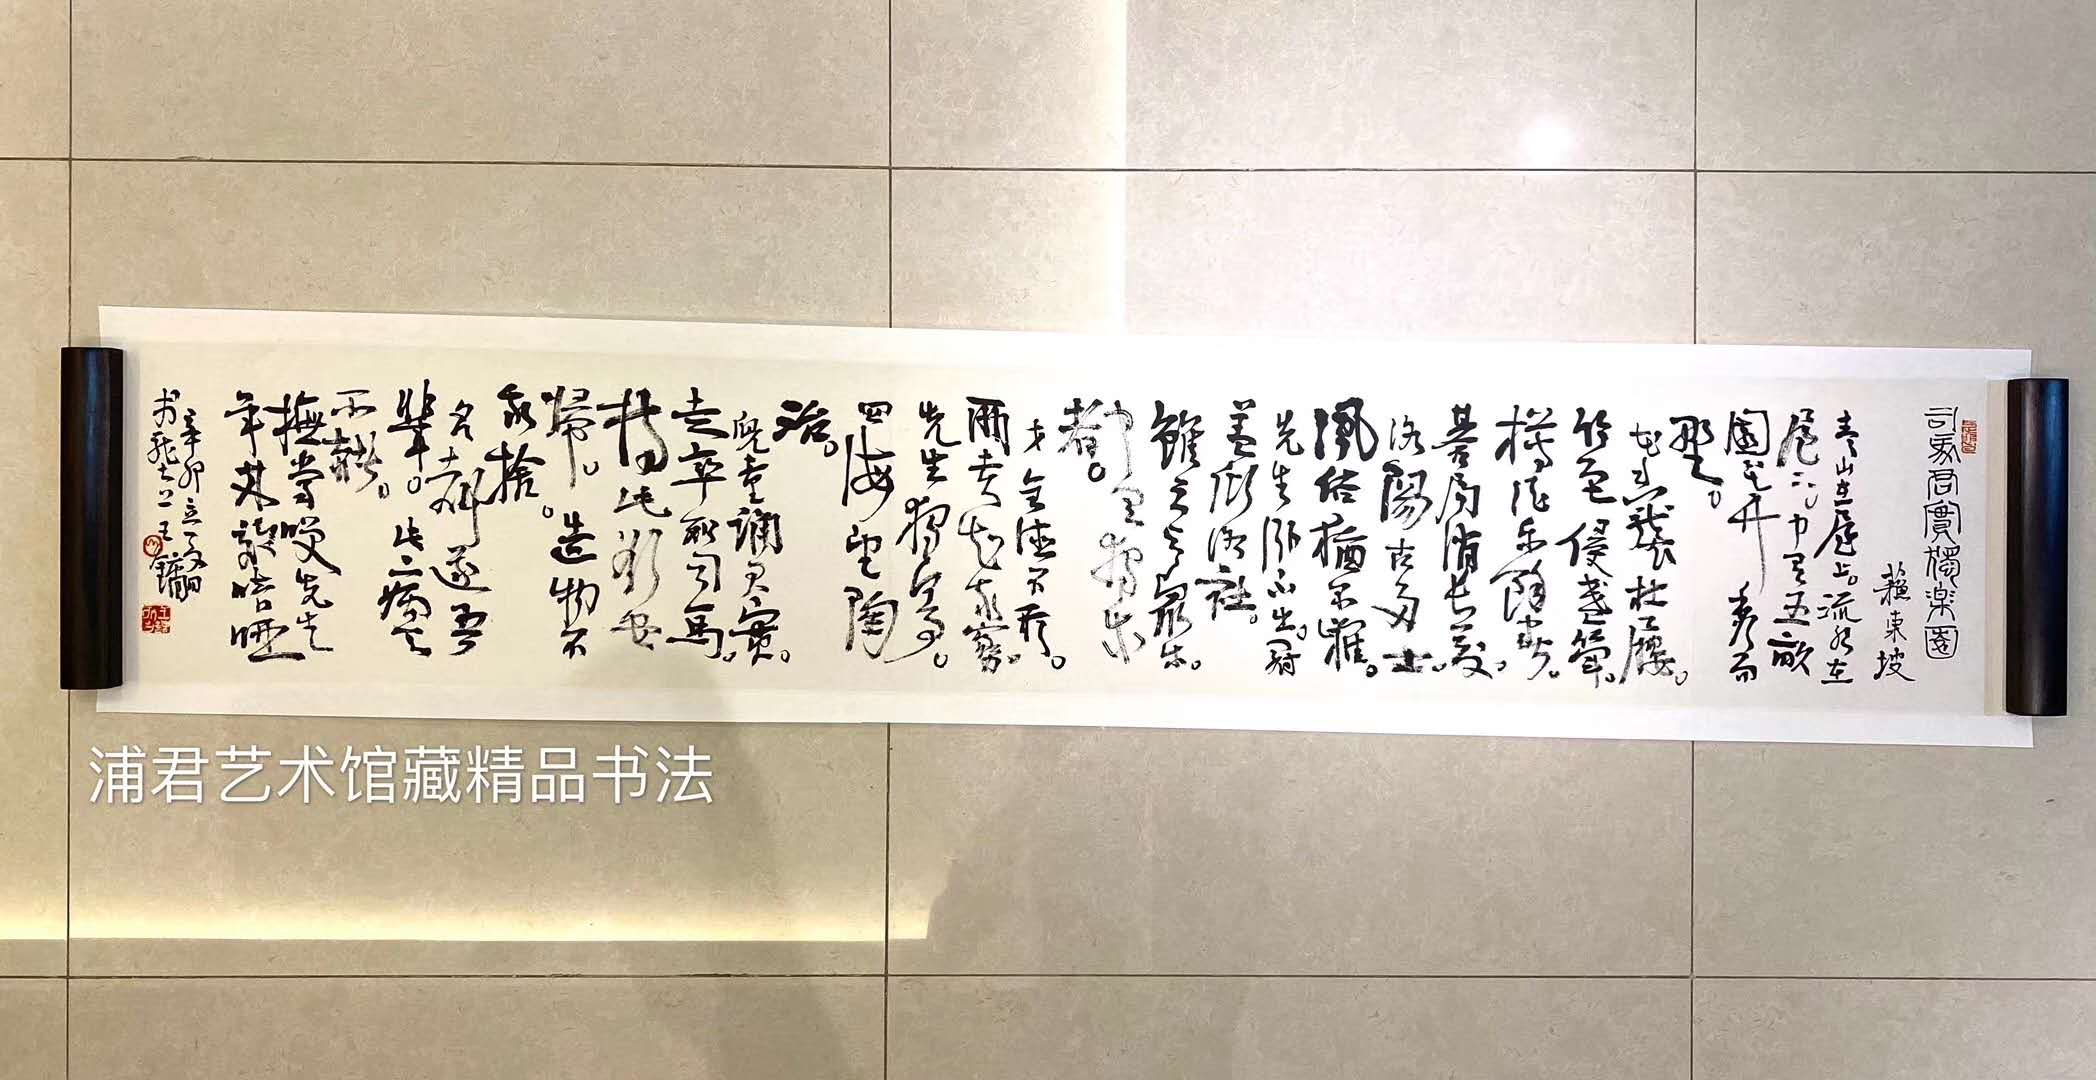 司馬君實獨樂園
蘇東坡
青山在屋上。流水在
屋下。中有五畝
園花竹秀而
野。
花香襲杖屨。
竹色侵盞斝。
樽酒樂餘春。
碁局消長夏。
洛陽古多士。
風俗猶爾雅。
先生卧不出。冠
蓋傾洛社。
雖云與衆樂。
中有獨樂
者。
才全德不形。
所貴知我寡。
先生獨何事。
四海望陶
冶。
兒童誦君實。
走卒知司馬。
持此欲安
歸。造物不
我捨。
名聲逐吾
輩。此病天
所赭。
撫掌笑先生
年來效喑啞
辛卯立夏
王鏞
浦君艺术馆藏精品书法